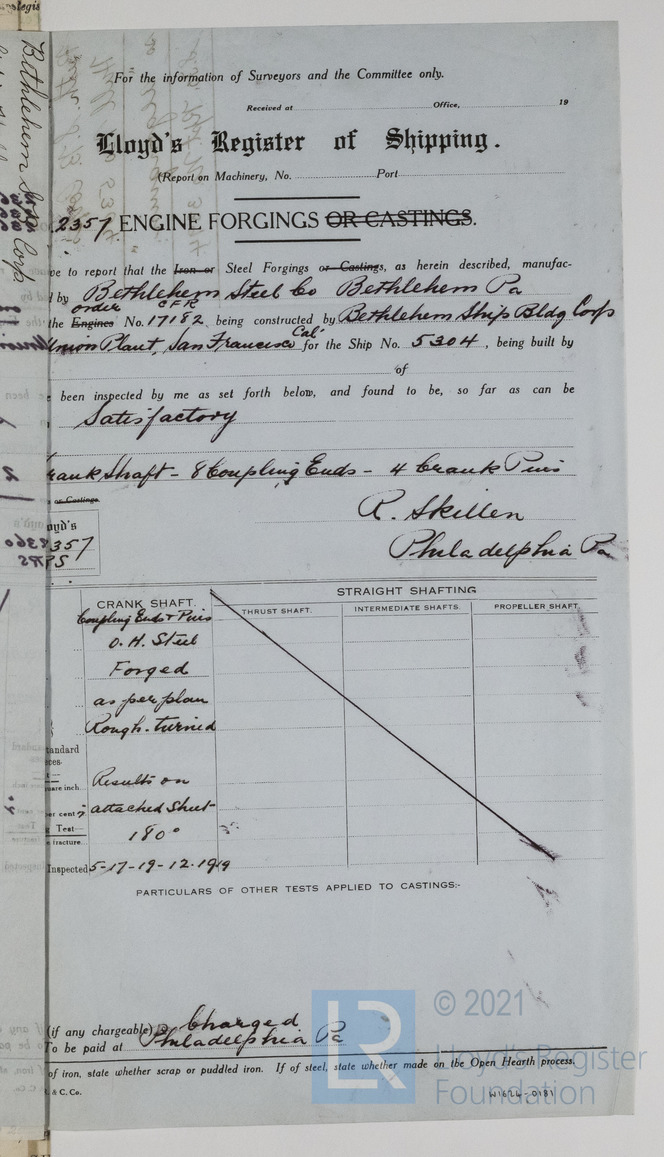 For the information of Surveyors and the Committee only.
Received at Office, 19
Lloyd's Register of Shipping.
(Report on Machinery, No. Port
2357 ENGINE FORGINGS OR CASTINGS.
to report that the Iron or Steel Forgings or Castings, as herein described, manufac-
by Bethlehem Steel Co Bethlehem Pa
order CFR
the Engines No. 17182 being constructed by Bethlehem Ship Bldg Corp
Union Plant, San Francisco Cal. for the Ship No. 5304, being built by
of
been inspected by me as set forth below, and found to be, so far as can be
Satisfactory
Crank Shaft - 8 Coupling Ends - 4 Crank Pins
or Castings
R. Skillen
Philadelphia Pa
oyd's
357
PS
STRAIGHT SHAFTING
CRANK SHAFT. THRUST SHAFT. INTERMEDIATE SHAFTS. PROPELLER SHAFT.
Coupling Ends & Pins
O. H. Steel
Forged
as per plan
Rough-turned
tandard
ces.
uare inch Results on
per cent attached Sheet
Test 180°
fracture
Inspected 5-17-19-12-1919
PARTICULARS OF OTHER TESTS APPLIED TO CASTINGS:-
(if any chargeable) Charged
To be paid at Philadelphia Pa
of iron, state whether scrap or puddled iron. If of steel, state whether made on the Open Hearth process.
& C. Co.
W1624-0181
Bethlehem Ship Corp
LR
© 2021
Lloyd's Register
Foundation